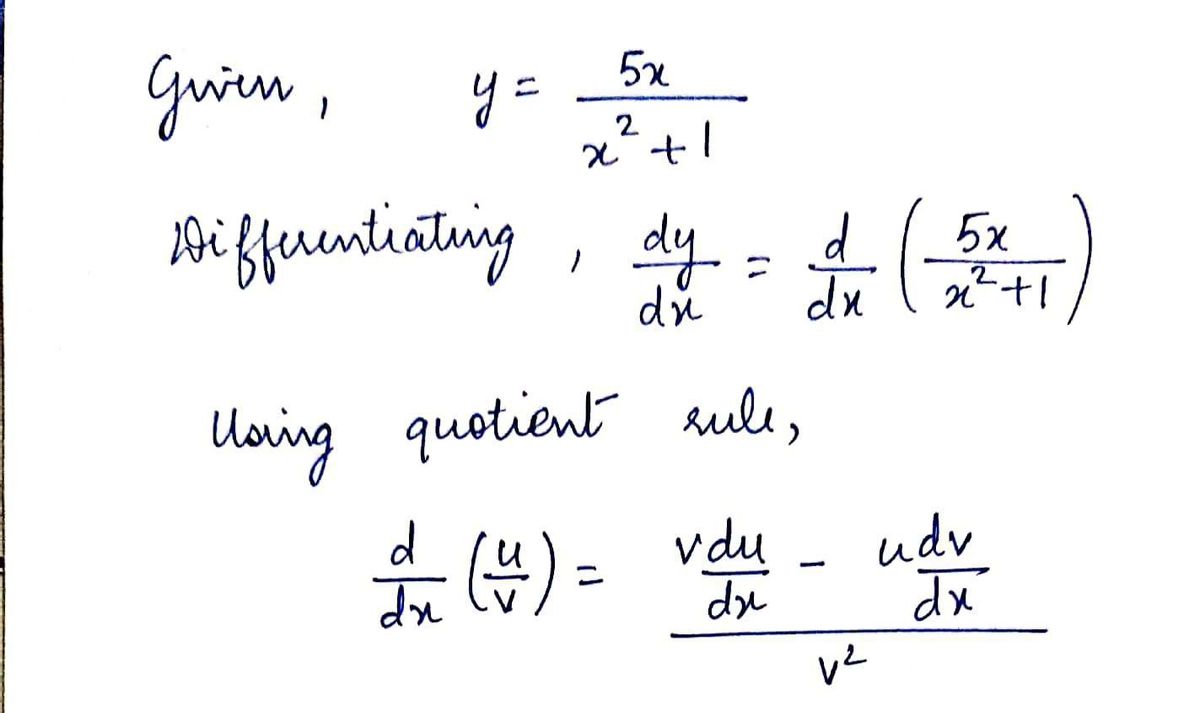 Given, y = 5x / (x² + 1)
Differentiating, dy/dx = d/dx (5x / (x² + 1))
Using quotient rule,
d/dx (u/v) = (v du/dx - u dv/dx) / v²